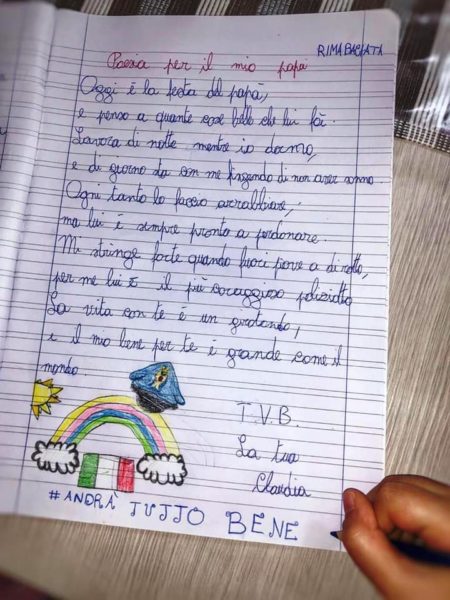 RIMA BACIATA
Poesia per il mio papà
Oggi è la festa del papà,
e penso a quante cose belle che lui fà.
Lavora di notte mentre io dormo,
e di giorno sta con me fingendo di non aver sonno.
Ogni tanto lo faccio arrabbiare,
ma lui è sempre pronto a perdonare.
Mi stringe forte quando fuori piove a dirotto,
per me lui è il più coraggioso poliziotto
La vita con te è un girotondo,
e il mio bene per te è grande come il
mondo.
T.V.B.
La tua
Claudia
#ANDRÀ TUTTO BENE